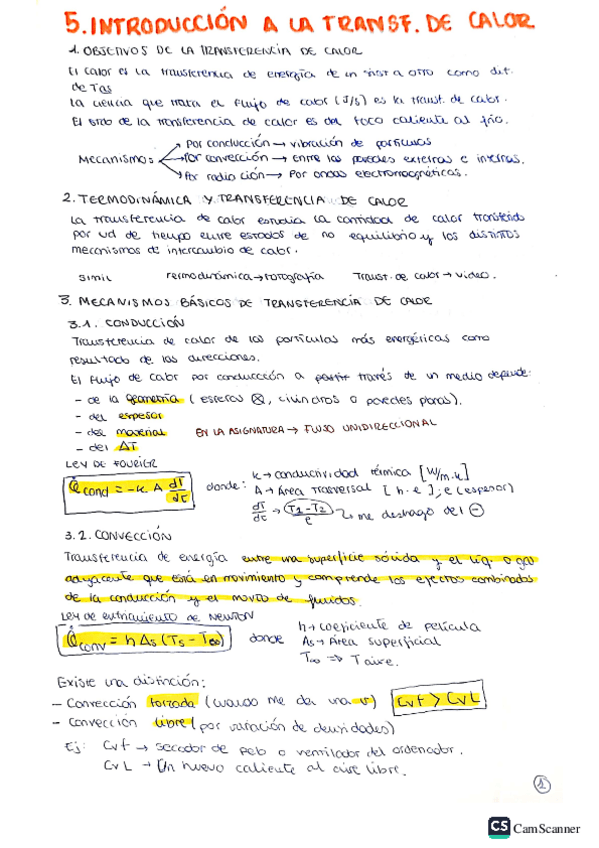 5. INTRODUCCIÓN A LA TRANSF. DE CALOR
1. OBJETIVOS DE LA TRANSFERENCIA DE CALOR
El calor es la transferencia de energía de un sist a otro como dif.
de Tas
La ciencia que trata el flujo de calor (J/s) es la transf. de calor.
El sentido de la transferencia de calor es del foco caliente al frio.
Mecanismos
Por conducción → vibración de partículas
Por convección → Entre las paredes externas e internas.
Por radiación → Por ondas electromagnéticas.
2. TERMODINÁMICA Y TRANSFERENCIA DE CALOR
La transferencia de calor estudia la cantidad de calor transferido
por ud de tiempo entre estados de no equilibrio y los distintos
mecanismos de intercambio de calor.
Simil Termodinámica → Fotografía Transf. de calor → video.
3. MECANISMOS BÁSICOS DE TRANSFERENCIA DE CALOR
3.1. CONDUCCIÓN
Transferencia de calor de las partículas más energéticas como
resultado de las direcciones.
El flujo de calor por conducccón a partir través de un medio depende:
- de la geometría (esferas, cilindros o paredes planas).
- del espesor
- del material EN LA ASIGNATURA → FLUJO UNIDIRECCIONAL
- del ΔT
LEY DE FOURIER
Q̇cond = -k A dT/dt donde: k → conductividad térmica [W/m.k]
A → Área trasversal [h.e], e (espesor)
dT/dt → (T1-T2)/e ↳ me deshago del ⊖
3.2. CONVECCIÓN
Transferencia de energía entre una superficie sólida y el líq. o gas
adyacente que está en movimiento y comprende los efectos combinados
de la conducción y el movto de fluidos.
Ley de enfriamiento de NEWTON
Q̇conv = h As (Ts - T∞) donde h → coeficiente de película
As → Área superficial
T∞ => T aire.
Existe una distinción:
- Convección forzada (cuando me dan una v) Cvf > CvL
- Convección libre (por variación de densidades)
Ej: Cvf → secador de pelo o ventilador del ordenador.
CvL → Un huevo caliente al aire libre.
1
CS CamScanner